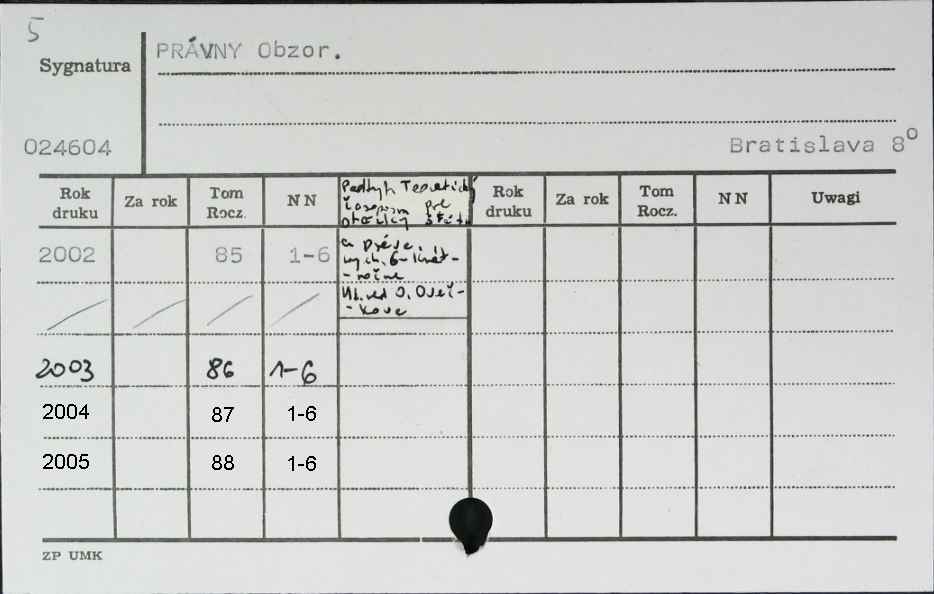 5
PRÁVNY Obzor.
Sygnatura
024604
Bratislava 8°
Rok druku Za rok Tom Rocz. NN Rok druku Za rok Tom Rocz. NN Uwagi
Podtyt. Teoretický
časopis pre
otázky štátu
a práva.
2002 85 1-6
vych. 6-krát-
-ročne
Hl. red O.
2003 86 1-6
2004 87 1-6
2005 88 1-6
ZP UMK